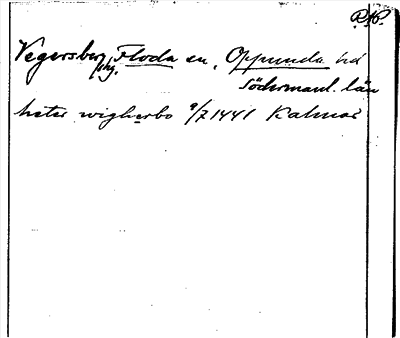 Vegersberg, Floda sn, Oppunda hd
hg.
Södermanl. län
heter wigherbo 9/7 1441 Kalmar